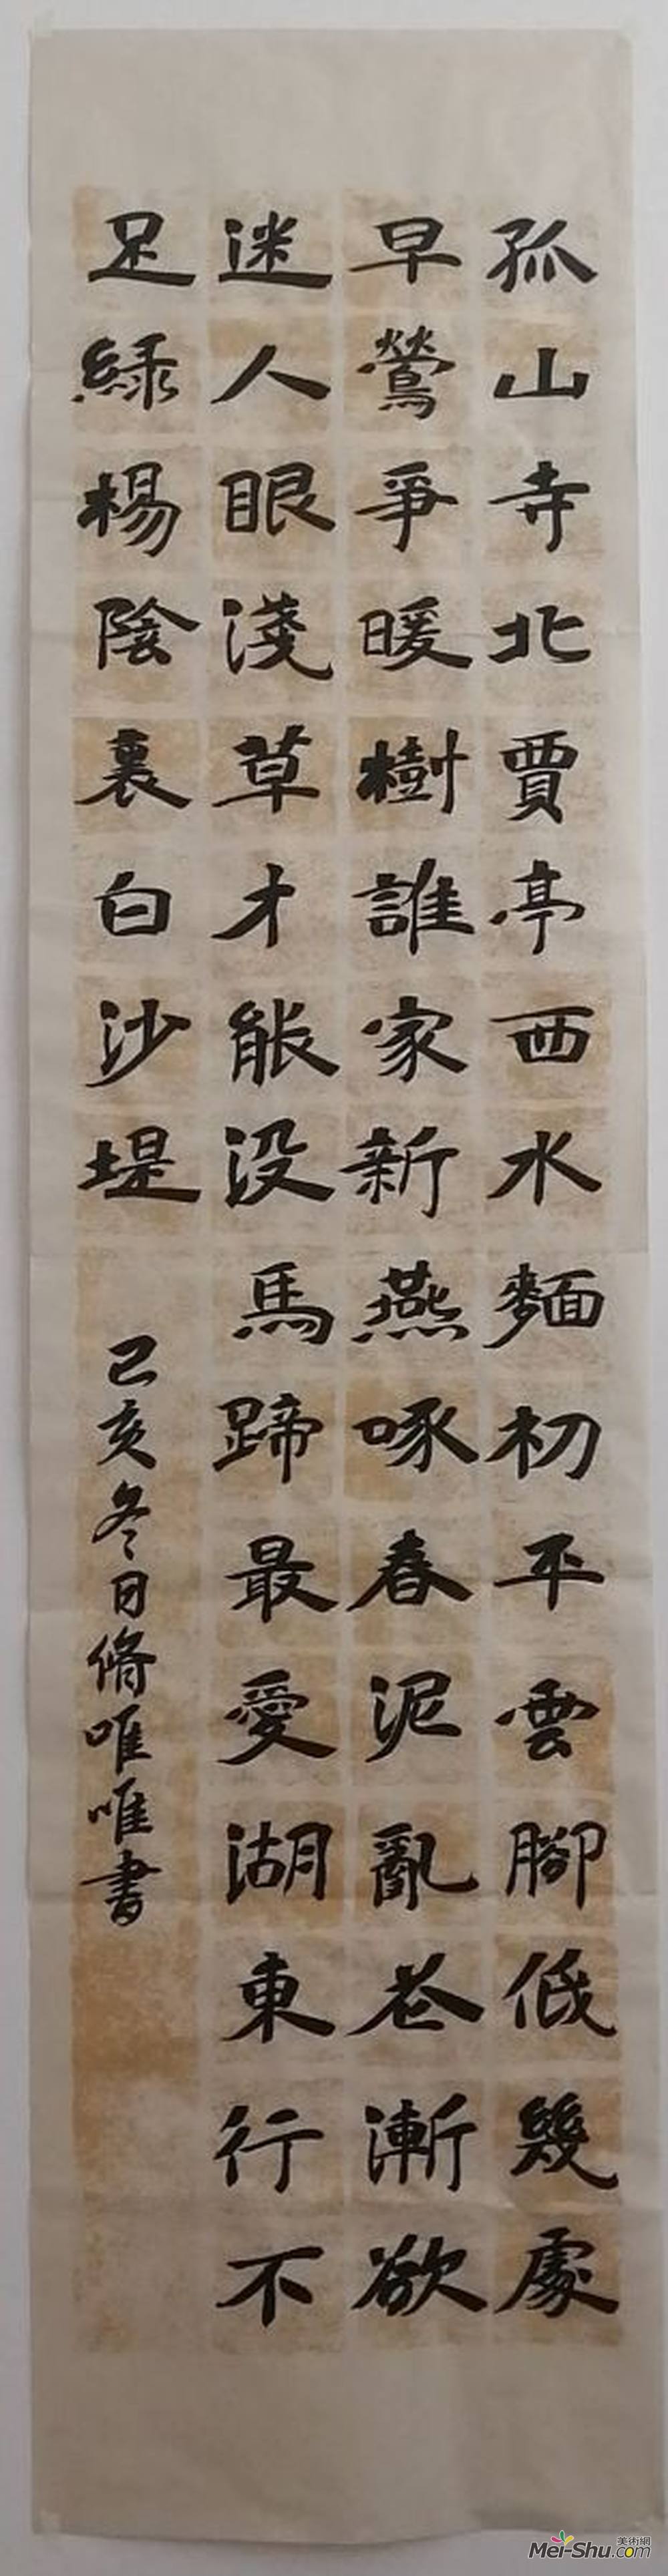 孤山寺北賈亭西水麵初平雲腳低幾處
早鶯爭暖樹誰家新燕啄春泥亂花漸欲
迷人眼淺草才能没馬蹄最愛湖東行不
足綠楊陰裏白沙堤
己亥冬日脩唯唯書
美術網
Mei-Shu.com